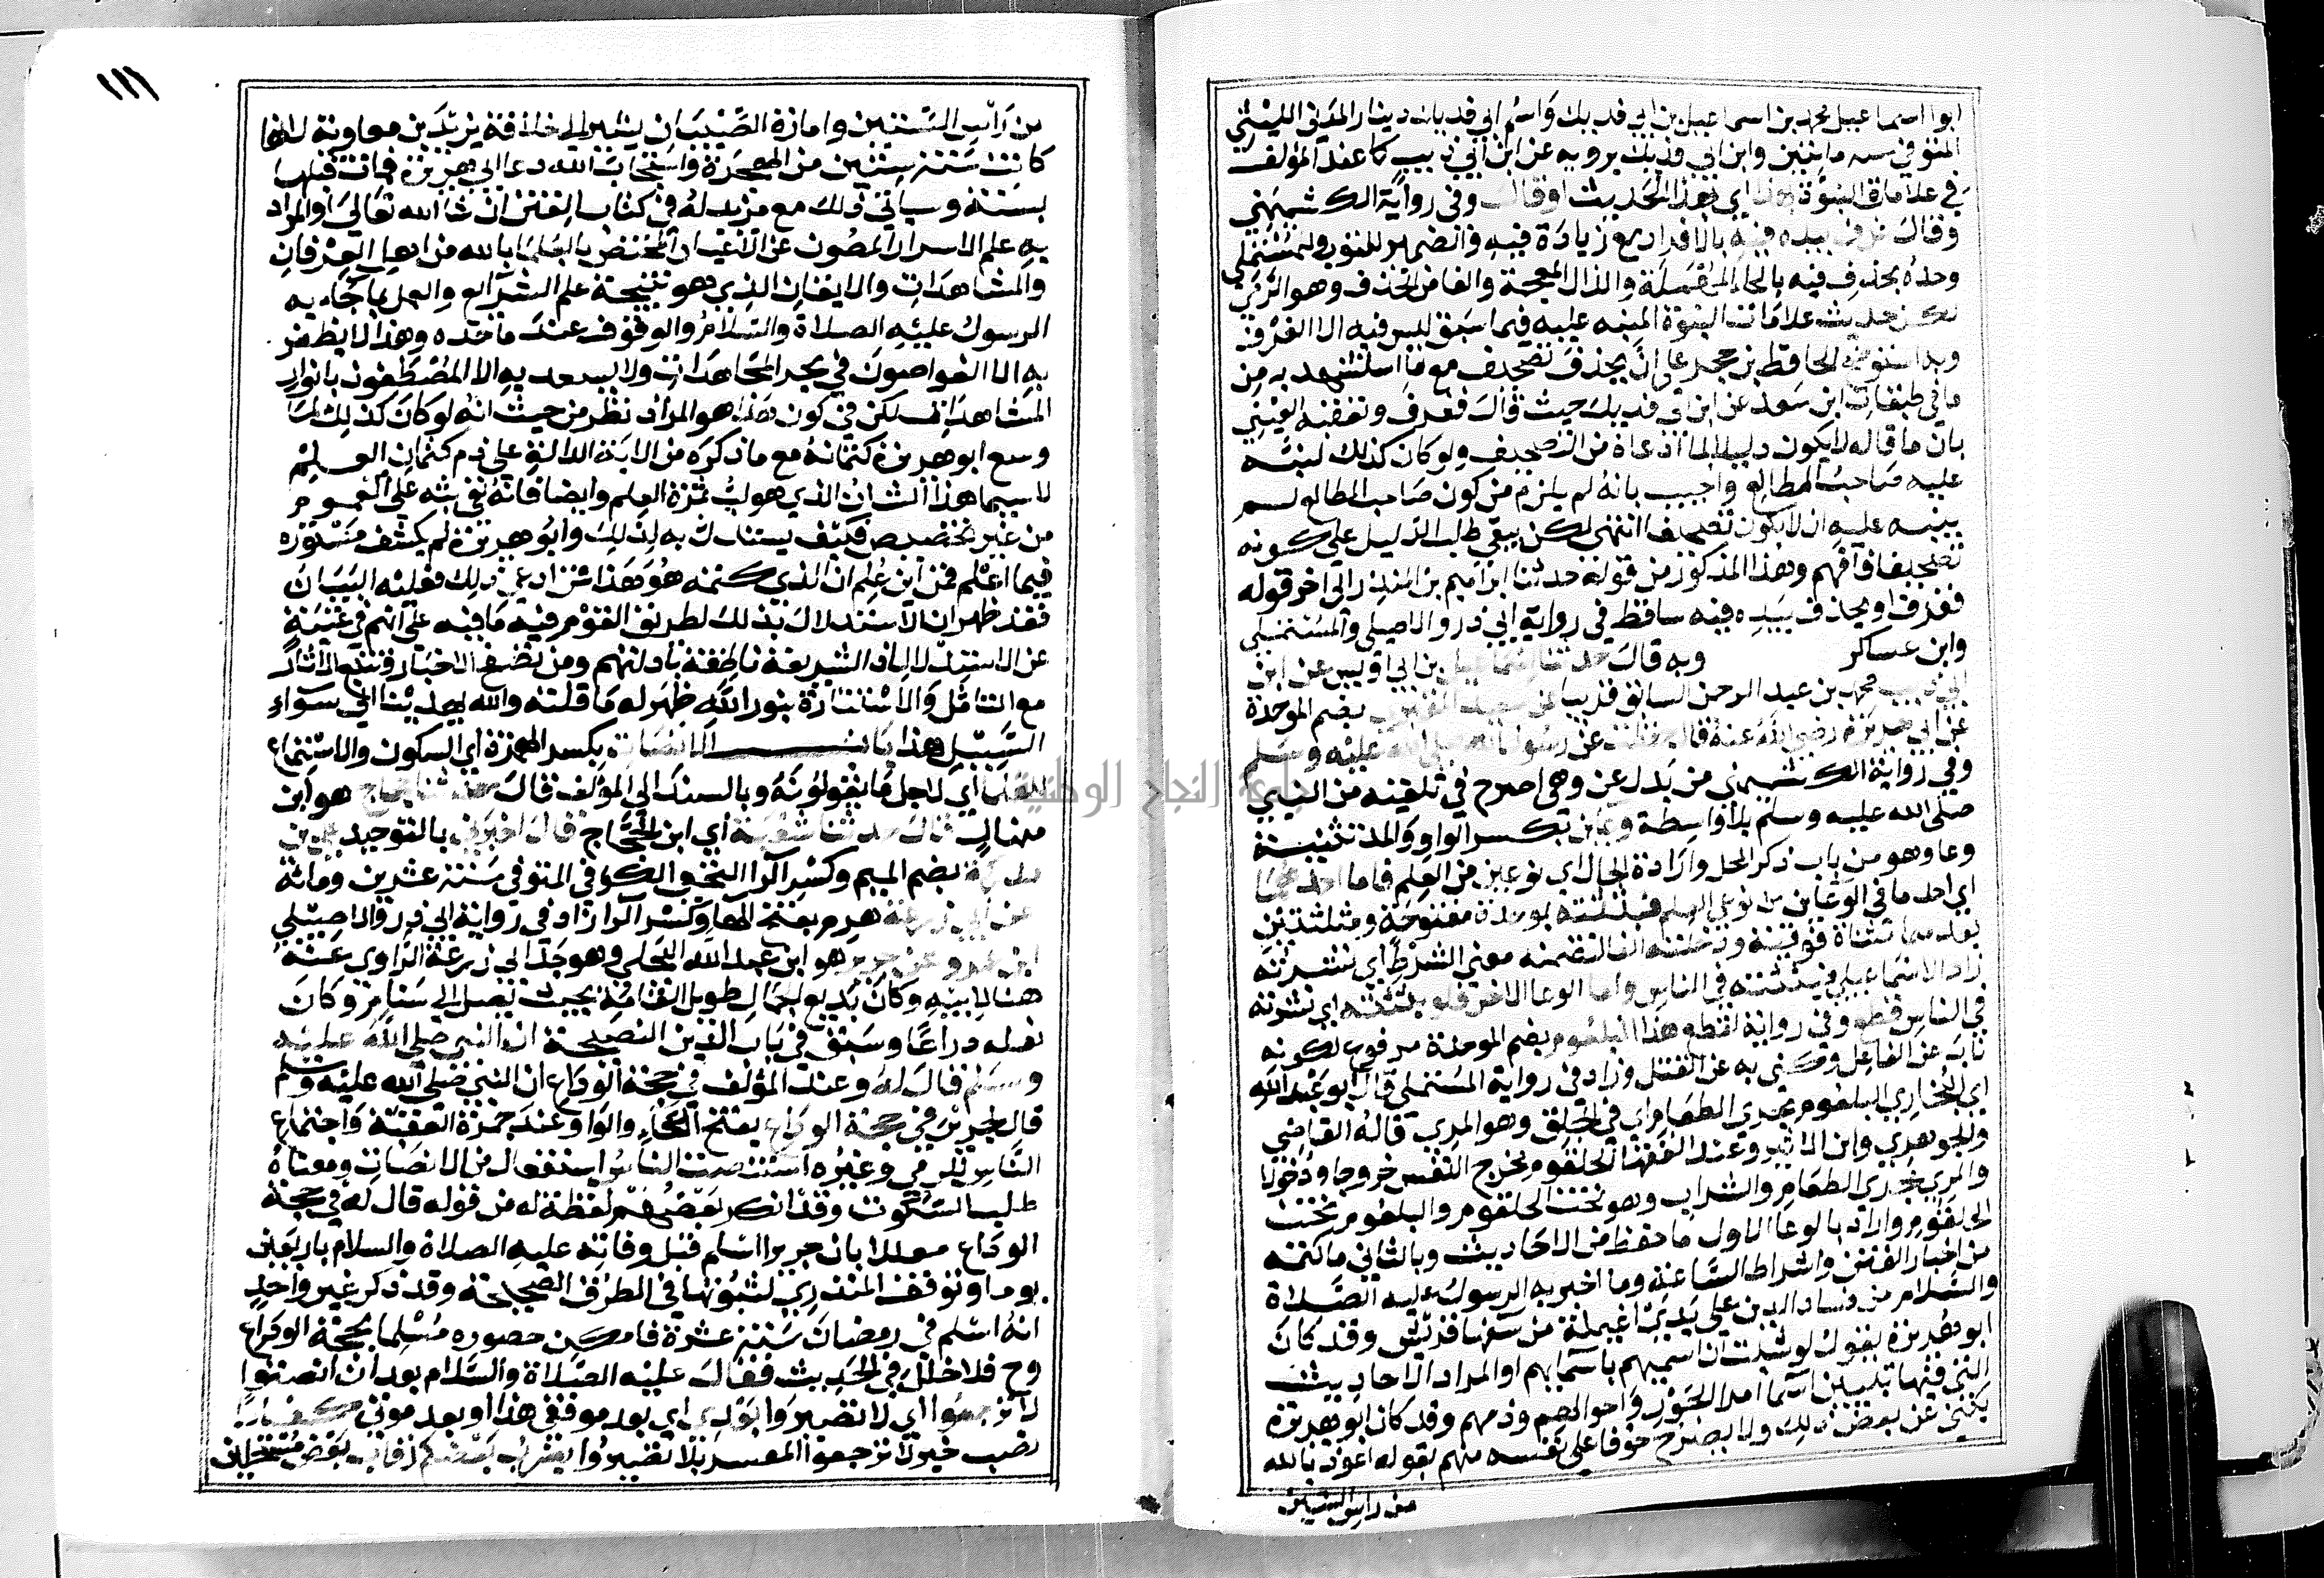 ابوا اسماعيل محمد بن اسماعيل بن ابي فديك واسم ابي فديك دينار المدني الليثي
المتوفي سنه مايتين وابن ابي فديك يرويه عن ابن ابي ذيب كما عند المؤلف
في علامات النبوة بهذا اي بهذا الحديث او قال وفي رواية الكشميهني
وقال غرف بيده فيه بالافراد مع زيادة فيه والضمير للثوب وللمستملي
وحده يحذف فيه بالحاء المهملة والذال المعجمة والفا من الحذف وهو الرمي
لكن حديث علامات النبوة المنبه عليه فيما سبق ليس فيه الا الغرفة
وبه استوضح الحافظ بن حجر على ان يحذف تصحيف مع ما استشهد به من
ما في طبقات ابن سعد عن ابن ابي فديك حيث قال فغرف وتعقبه العيني
بان ما قاله لا يكون دليلا لما ادعاه من التصحيف ولو كان كذلك لنبه
عليه صاحب المطالع واجيب بانه لم يلزم من كون صاحب المطالع لم
ينبه عليه ان لا يكون تصحيفا انتهى لكن يبقى طلب الدليل على كونه
تصحيفا فافهم وهذا المذكور من قوله حدثنا ابراهيم بن المنذر الى اخر قوله
فغرف او يحذف بيده فيه ساقط في رواية ابي ذر والاصيلي والمستملي
وابن عساكر وبه قال حدثنا اسماعيل بن ابي اويس عن ابن
ابي ذيب محمد بن عبد الرحمن السابق قريبا عن سعيد المقبري بضم الموحدة
عن ابي هريرة رضي الله عنه قال حفظت عن رسول الله صلى الله عليه وسلم
وفي رواية الكشميهني من بدل عن وهي اصرح في تلقيه من النبي
صلى الله عليه وسلم بلا واسطة وعاين بكسر الواو والمد تثنية
وعا وهو من باب ذكر المحل وارادة الحال اي نوعين من العلم فاما احدهما
اي احد ما في الوعاين من نوعي العلم فبثثته بموحدة مفتوحة ومثلثتين
بعدهما مثناة فوقية ودخلته الفا لتضمنه معنى الشرط اي نشرته
زاد الاسماعيلي فبثثته في الناس واما الوعا الاخر فلو بثثته اي نشرته
في الناس قطع وفي رواية لقطع هذا البلعوم بضم الموحدة مرفوع لكونه
ناب عن الفاعل وكني به عن القتل وزاد في رواية المستملي قال ابو عبد الله
اي البخاري البلعوم مجرى الطعام اي في الحلق وهو المري قاله القاضي
والجوهري وابن الاثير وعند الفقها الحلقوم مخرج النفس خروجا ودخولا
والمري مجري الطعام والشراب وهو تحت الحلقوم والبلعوم تحت
الحلقوم واراد بالوعا الاول ما حفظ من الاحاديث وبالثاني ما كتمه
من اخبار الفتن واشراط الساعة وما اخبر به الرسول عليه الصلاة
والسلام من فساد الدين على يدي اغيلمة من سفها قريش وقد كان
ابو هريرة يقول لو شئت ان اسميهم باسمايهم او المراد الاحاديث
التي فيها تبيين اسما امرا الجور واحوالهم وذمهم وقد كان ابو هريرة
يكني عن بعض ذلك ولا يصرح خوفا على نفسه منهم بقوله اعوذ بالله
من راس الستين
١١١
من راس الستين وامارة الصبيان يشير الى خلافة يزيد بن معاوية لانها
كانت سنة ستين من الهجرة واستجاب الله دعا ابي هريرة فمات قبلها
بسنة وسياتي ذلك مع مزيد له في كتاب الفتن ان شا الله تعالى او المراد
به علم الاسرار المصون عن الاغيار المختص بالعلما بالله من اهل العرفان
والمشاهدات والايقان الذي هو نتيجة علم الشرائع والعمل بما جاء به
الرسول عليه الصلاة والسلام والوقوف عند ما حده وهذا لا يظفر
به الا الغواصون في بحر المجاهدات ولا يسعد به الا المصطفون بانوار
المشاهدات لكن في كون هذا هو المراد نظر من حيث انه لو كان كذلك لما
وسع ابو هريرة كتمانه مع ما ذكره من الاية الدالة على ذم كتمان العلم
لا سيما هذا الشان الذي هو لب ثمرة العلم وايضا فانه نفى بثه على العموم
من غير تخصيص فكيف يستدل به لذلك وابو هريرة لم يكشف مستوره
فيما اعلم فمن اين علم ان الذي كتمه هو هذا فمن ادعى ذلك فعليه البيان
فقد ظهر ان الاستدلال بذلك لطريق القوم فيه ما فيه على انهم في غنية
عن الاستدلال اذ الشريعة ناطقة بادلتهم ومن تصفح الاخبار وتتبع الاثار
مع التامل والاستنارة بنور الله ظهر له ما قلته والله يهدينا الى سواء
السبيل هذا باب الانصات بكسر الهمزة اي السكون والاستماع
للعلما اي لاجل ما يقولونه وبالسند الى المؤلف قال حدثنا حجاج هو ابن
منهال قال حدثنا شعبة اي ابن الحجاج قال اخبرني بالتوحيد علي بن
مدرك بضم الميم وكسر الرا النخعي الكوفي المتوفي سنة عشرين ومائة
عن ابي زرعة هرم بفتح الها وكسر الرا زاد في رواية ابي ذر والاصيلي
ابن عمرو عن جرير هو ابن عبد الله البجلي وهو جد ابي زرعة الراوي عنه
هنا لابيه وكان بديع الجمال طويل القامة بحيث يصل الى سنام وكان
نعله ذراعا وسبق في باب الدين النصيحة ان النبي صلى الله عليه
وسلم قال له وعند المؤلف في حجة الوداع ان النبي صلى الله عليه وسلم
قال لجرير في حجة الوداع بفتح الحاء والواو عند جمرة العقبة واجتماع
الناس للرمي وغيره استنصت الناس استفعال من الانصات ومعناه
طلب السكوت وقد انكر بعضهم لفظة له من قوله قال له في حجة
الوداع معللا بان جريرا اسلم قبل وفاته عليه الصلاة والسلام باربعين
يوما وتوقف المنذري لثبوتها في الطرق الصحيحة وقد ذكر غير واحد
انه اسلم في رمضان سنة عشرة فامكن حضوره مسلما بحجة الوداع
وح فلا خلل في الحديث فقال عليه الصلاة والسلام بعد ان انصتوا
لا ترجعوا اي لا تصيروا بعدي اي بعد موقفي هذا او بعد موتي كفارا
نصب خبر لا ترجعوا المفسر بلا تصيروا يضرب بعضكم رقاب بعض مستحلين